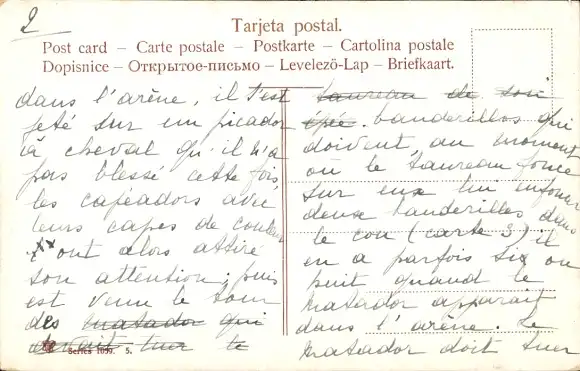 2
Tarjeta postal.
Post card – Carte postale – Postkarte – Cartolina postale
Dopisnice – Открытое-письмо – Levelező-Lap – Briefkaart.
dans l'arène, il s'est
jeté sur un picador
à cheval qu'il n'a
pas blessé cette fois,
les capéadors avec
leurs capes de couleur
ont alors attiré
son attention; puis
est venu le tour
des matador qui
devait tuer le
Series 1099. 5.
taureau de son
épée. banderillos qui
doivent, au moment
où le taureau fonce
sur eux lui enfoncer
deux banderilles dans
le cou (carte 3), il
en a parfois six ou
huit quand le
matador apparait
dans l'arène. Le
matador doit tuer